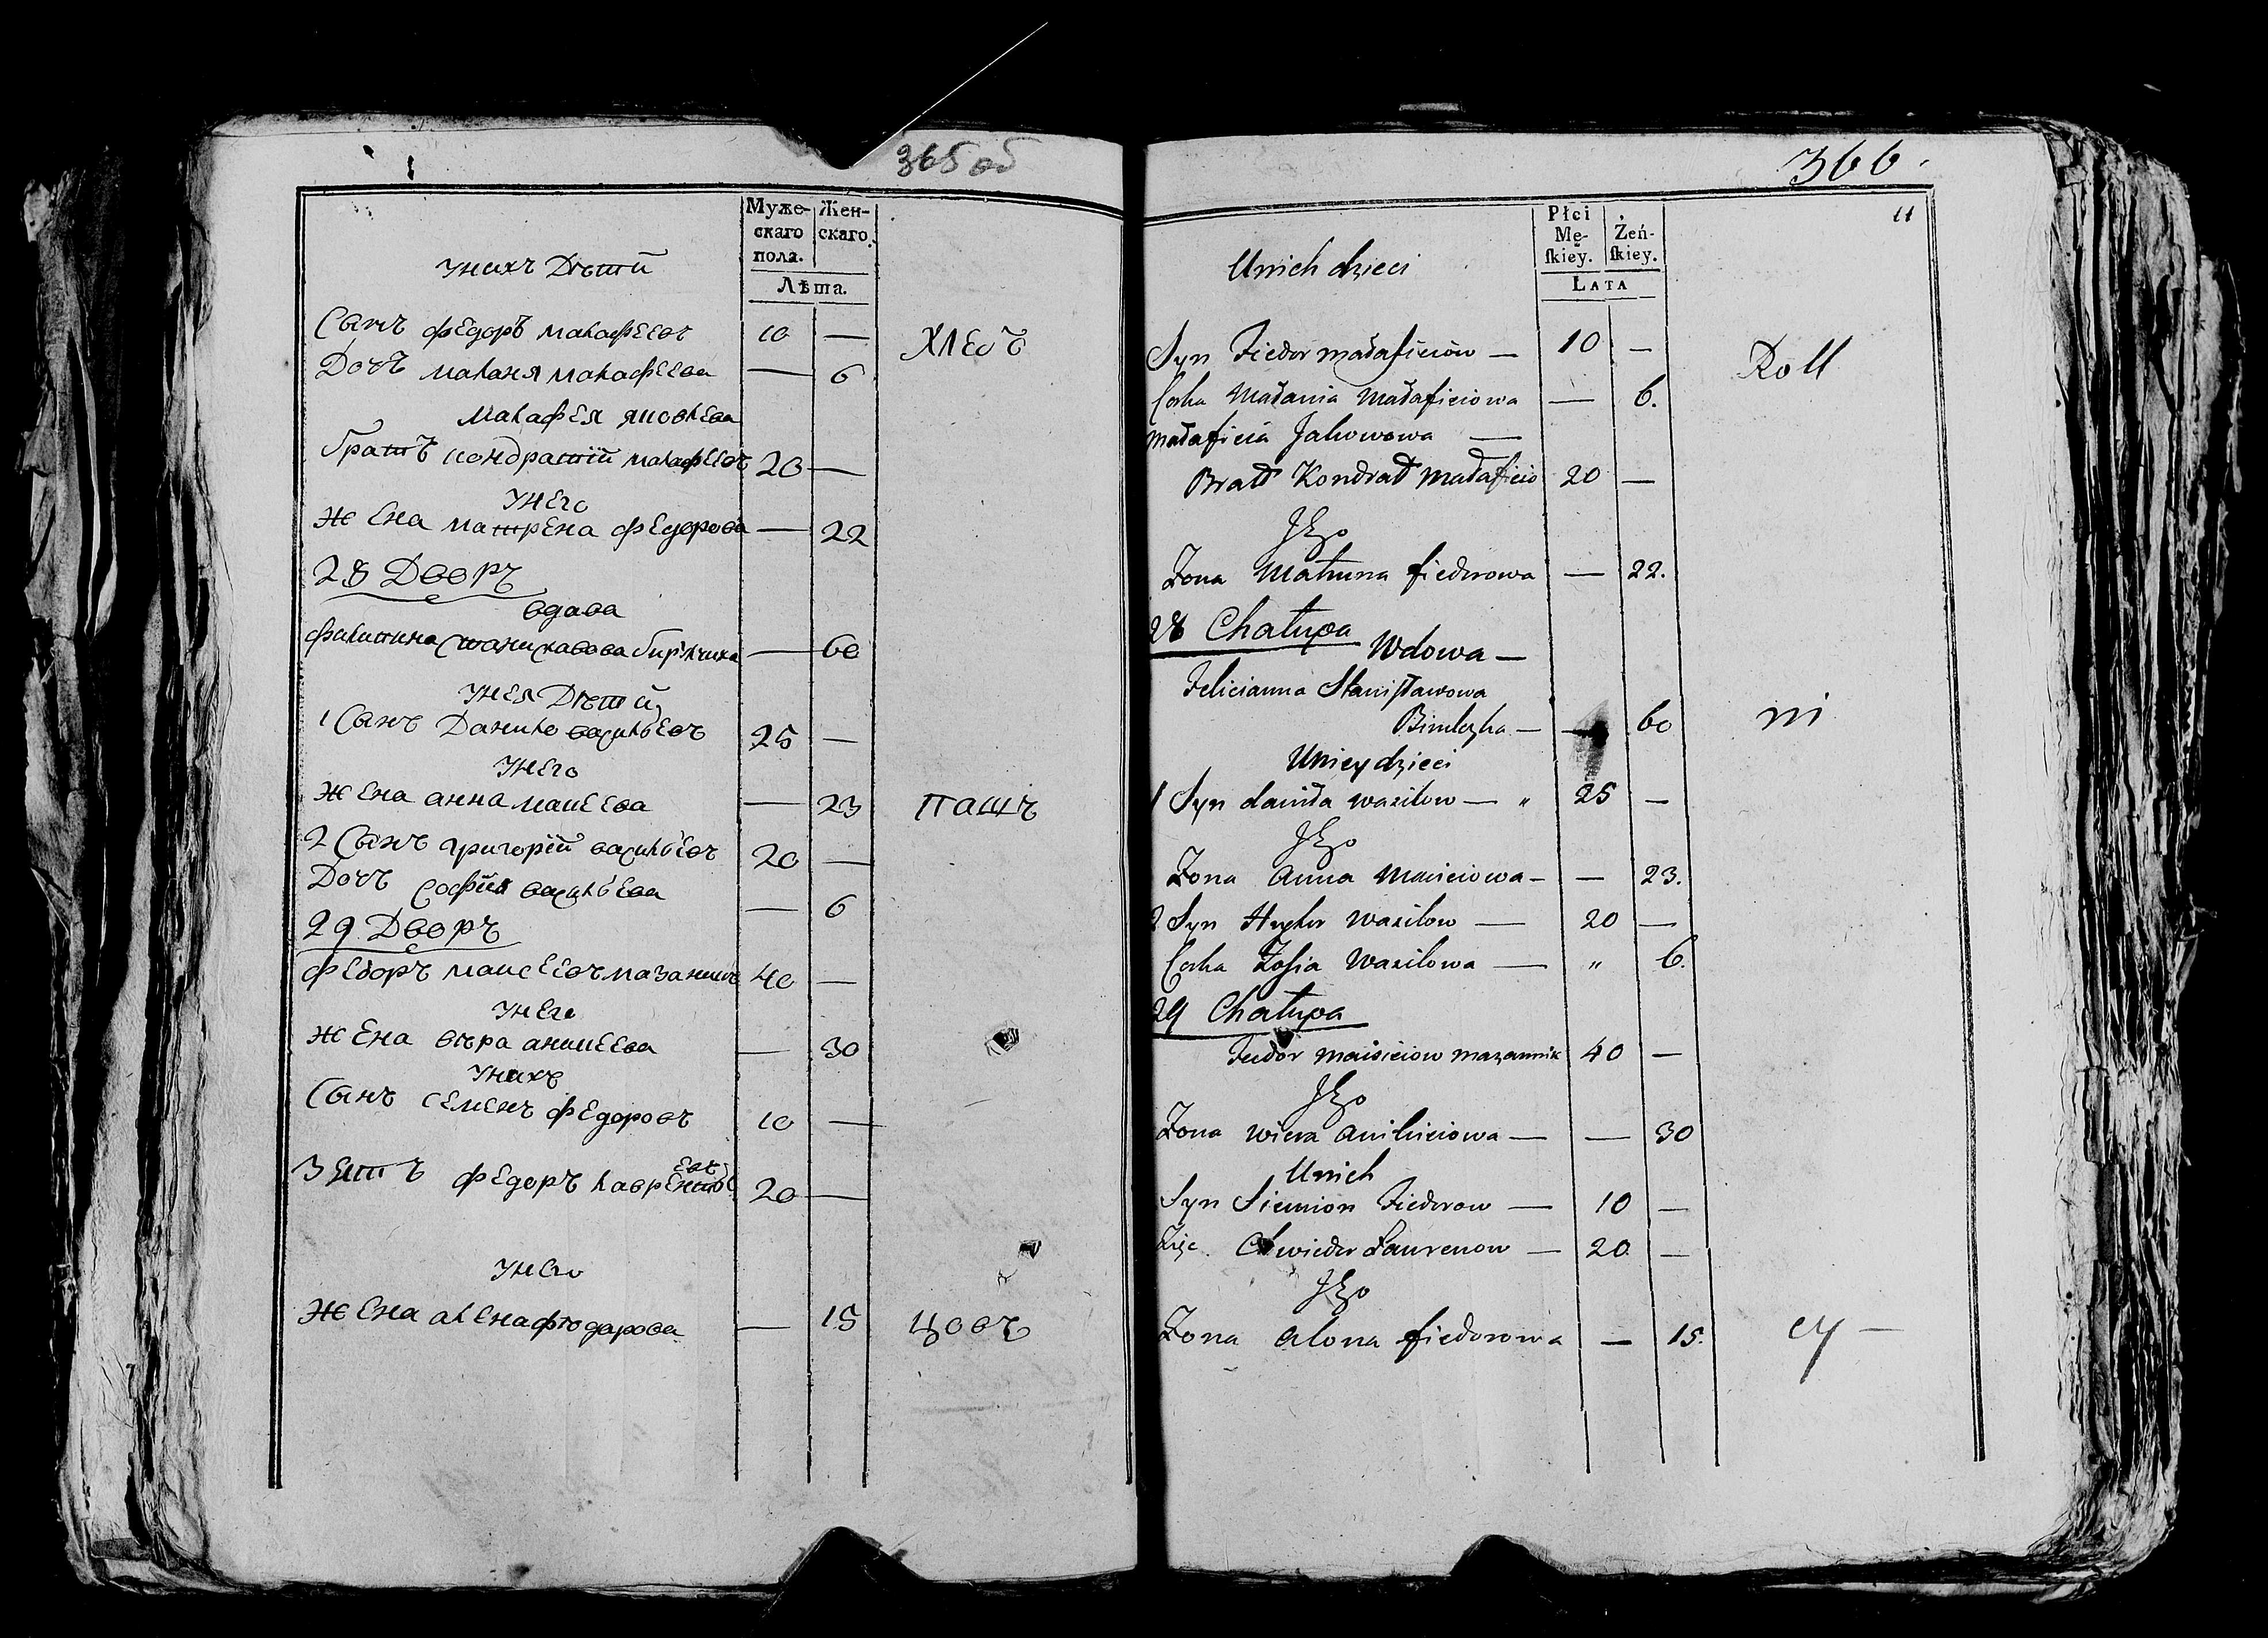 365 об
Муже-
скаго
пола.
Жен-
скаго.
Лѣта.
унихъ Дѣтй
Сынъ федоръ малафеевъ 10 —
ХЛЕбЪ
Дочъ маланя малафеева — 6
малафея яковлева
братъ кондратй малафеевъ 20 —
унего
жена матрена федорова — 22
28 Дворъ
вдова
филипина станиславова — 60
унея Дѣтй
1 Сынъ Данило васильевъ 25 —
унего
жена анна маисеева — 23
пашъ
2 Сынъ григорйй васильевъ 20 —
Дочъ софйя васильева — 6
29 Дворъ
федоръ маисеевъ мазаникъ 40 —
унего
жена вѣра аникеева — 30
унихъ
Сынъ семенъ федоровъ 10 —
Зетъ федоръ лаврентьевъ 20 —
унего
жена алена фтодарова — 15
цовъ
366.
11
Płci
Mę-
ſkiey.
Żeń-
ſkiey.
LATA
Unich dzieci
Syn Fiedor małafieiow — 10 —
Roll
Corka Małania Małafieiowa — 6.
małafieia Jakowowa —
Bratt Kondrat małafieio 20 —
Jego
Zona Matruna fiedorowa — 22.
28 Chałupa
Wdowa —
Felicianna Stanisławowa
— 60
ni
Uniey dzieci
1 Syn daniła wasilow — " 25 —
Jego
Zona Anna Maisieiowa — — 23.
2 Syn Wasilow — 20 —
Corka Zofia Wasilowa — " 6.
29 Chałupa
Fiedor maisieiow mazannik 40 —
Jego
Zona wiera anikieiowa — — 30
Unich
Syn Siemion Fiedorow — 10 —
Zięc Chwiedor Laurenow — 20 —
Jego
Zona Alona fiedorowa — 15.
cy —